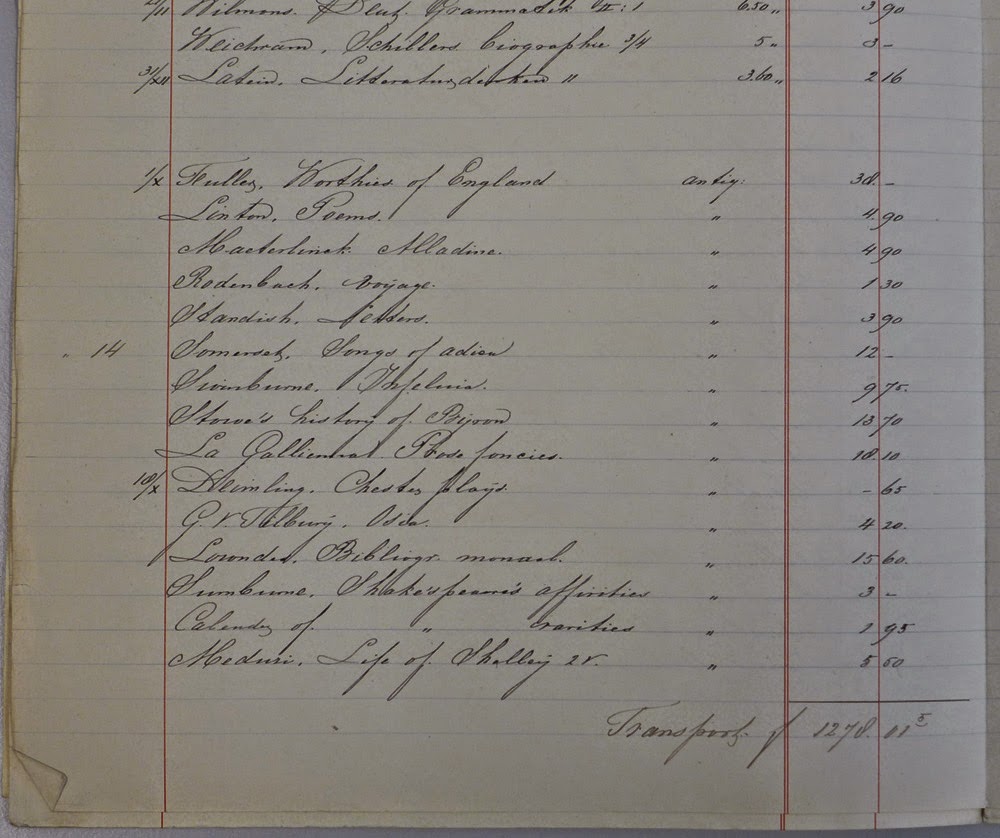 Wilmans. Deut. Grammatik II: 1 6.50 „ 3 90
Weichram, Schillers biographie 3/4 5 „ 3 –
31/XII Latein. Litteraturdenken „ 3.60 „ 2 16
1/X Fuller, Worthies of England antiq: 38. –
Linton, Poems. „ 4. 90
Maeterlinck Alladine. „ 4 90
Rodenbach, Voyage. „ 1 30
Standish, Letters. „ 3 90
„ 14 Somerset, Songs of adieu „ 12 –
Swinburne, „ 9 75.
Stowe's history of Byron „ 13 70
La Gallienne Prose fancies. „ 18 10
18/X Deimling, Chester plays. „ – 65
G. v. Tilbury, Otia. „ 4 20.
Lowndes, Bibliogr. manual. „ 15 60.
Swinburne, Shakespeare's affinities „ 3 –
Calendar of „ rarities „ 1 95
Meduri, Life of Shelley 2 v. „ 5 50
Transport f 1278. 01 5